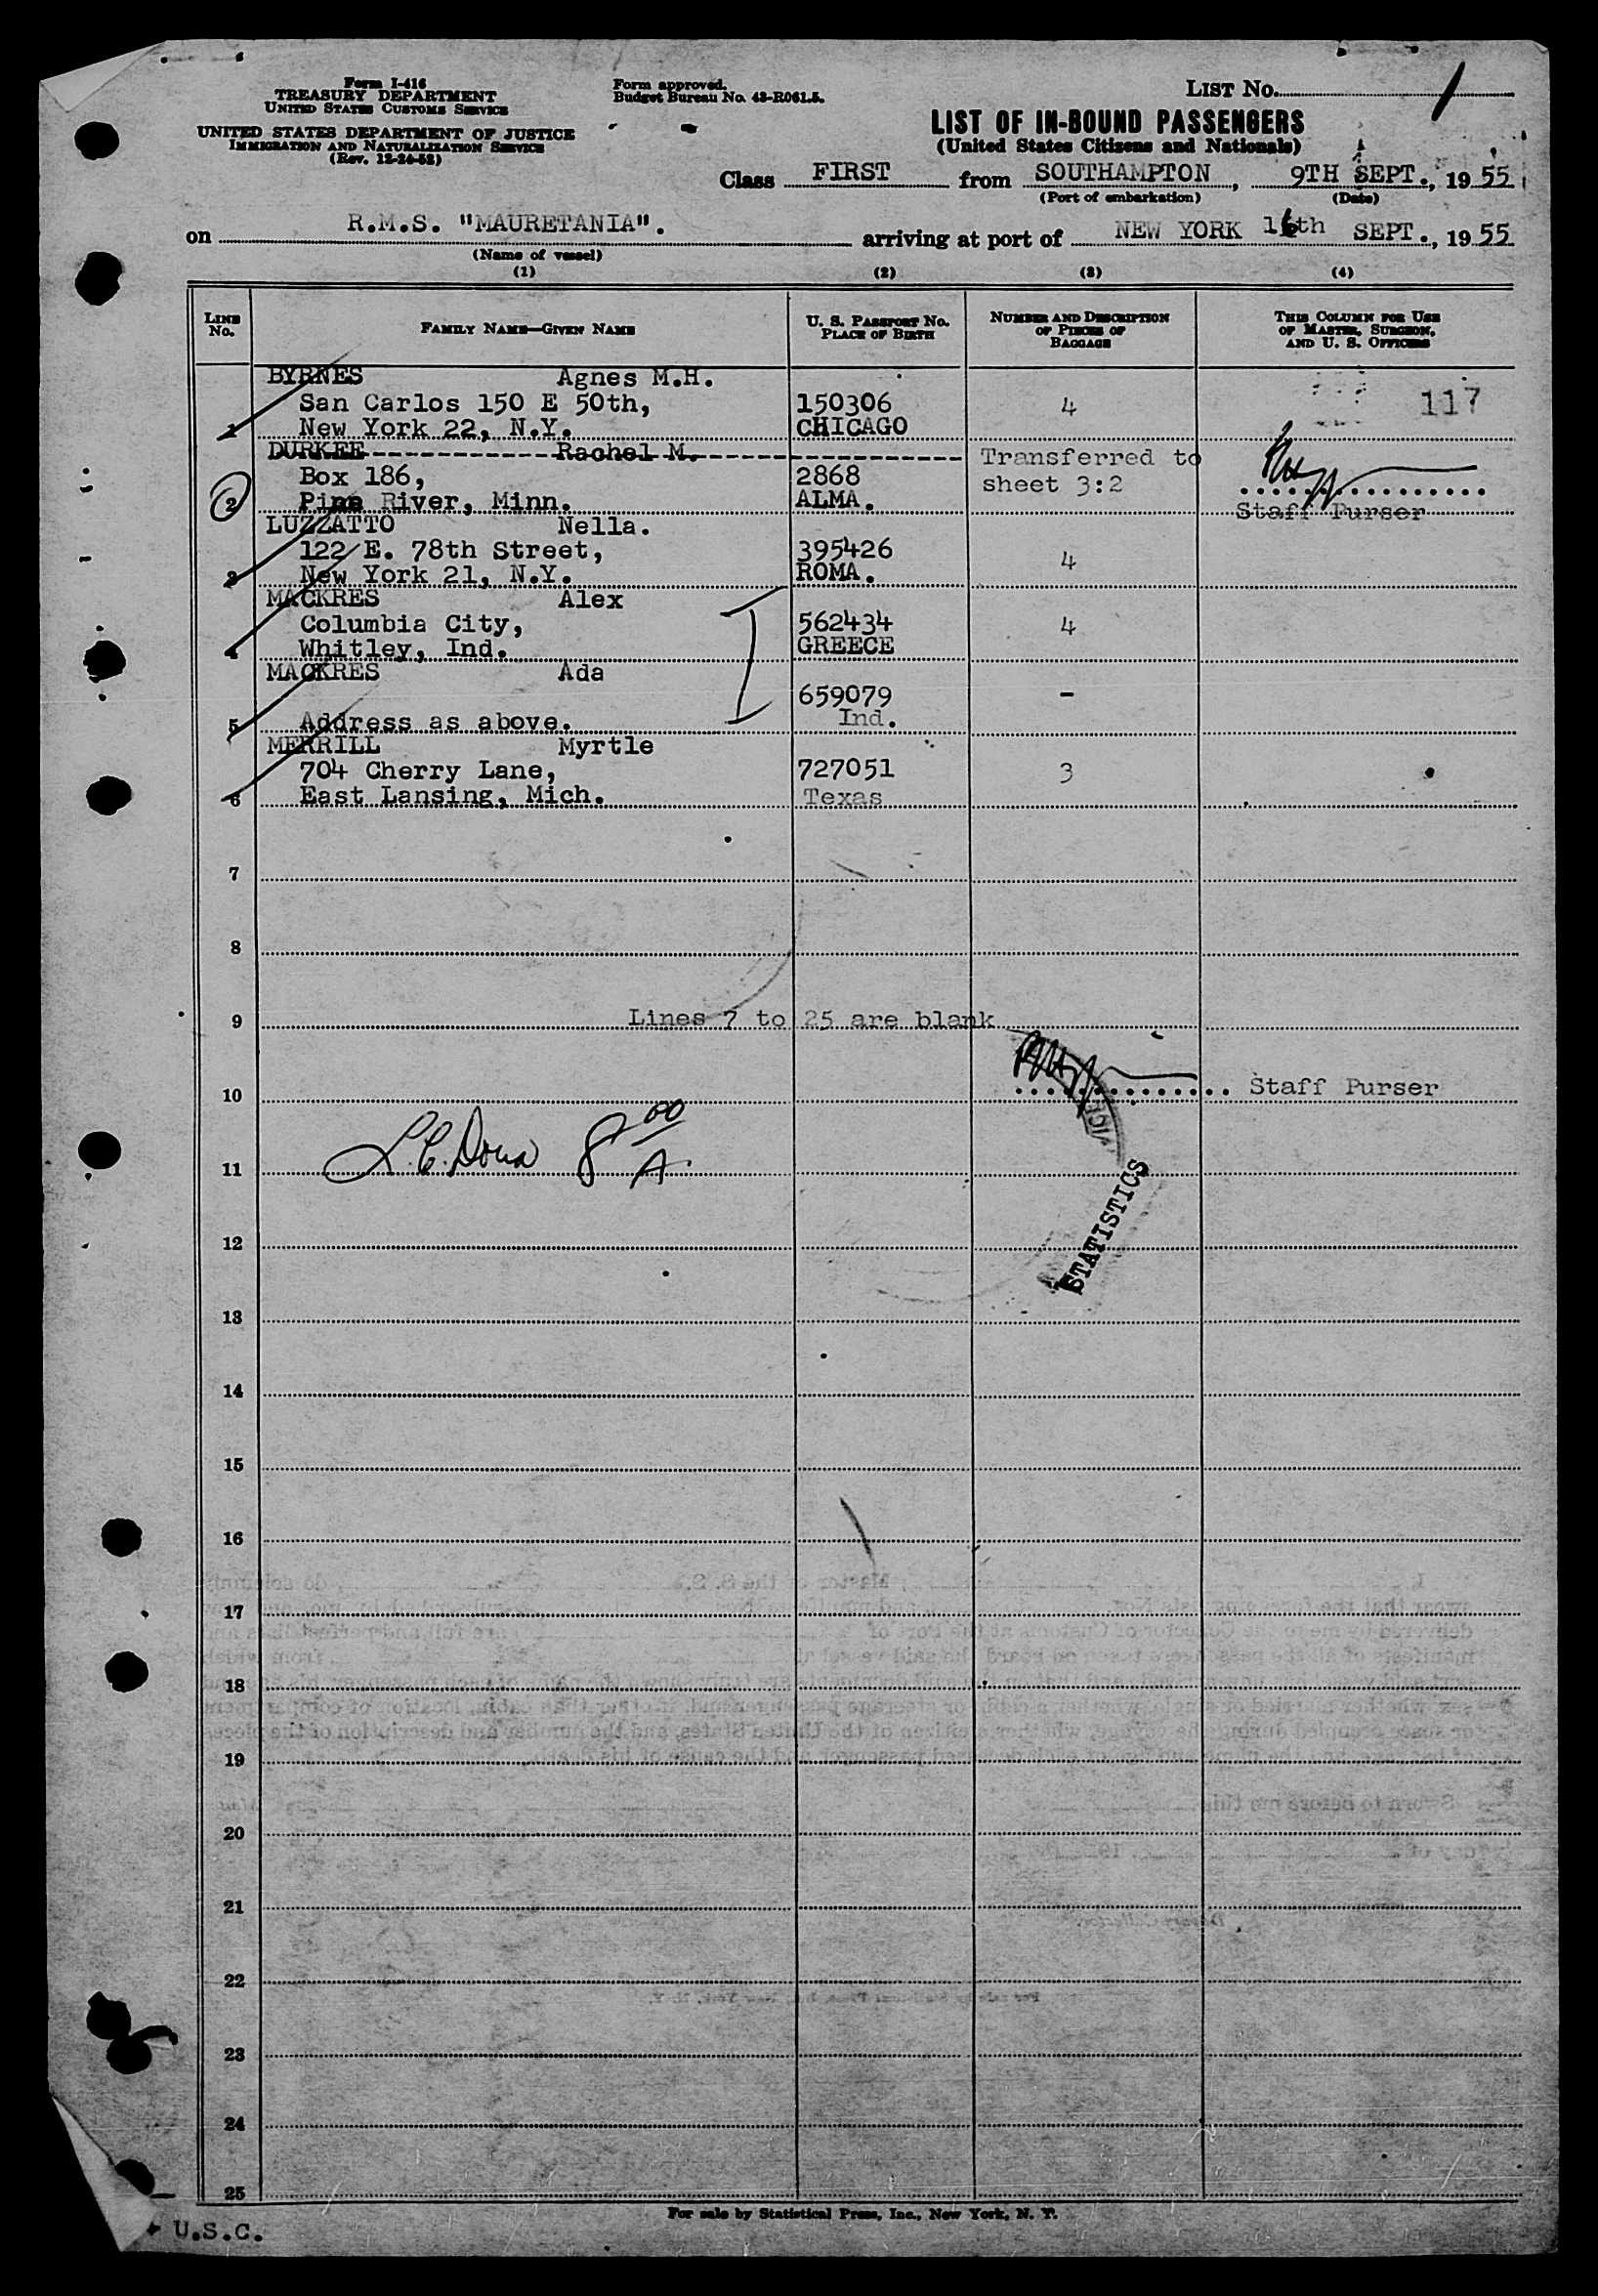 Form I-416
TREASURY DEPARTMENT
UNITED STATES CUSTOMS SERVICE
UNITED STATES DEPARTMENT OF JUSTICE
IMMIGRATION AND NATURALIZATION SERVICE
(Rev. 12-24-52)
Form approved.
Budget Bureau No. 43-R061.5.
LIST No. 1
LIST OF IN-BOUND PASSENGERS
(United States Citizens and Nationals)
Class FIRST from SOUTHAMPTON, 9TH SEPT., 1955
(Port of embarkation) (Date)
on R.M.S. "MAURETANIA". arriving at port of NEW YORK 16th SEPT., 1955
(Name of vessel)
(1) (2) (3) (4)
LINE No. FAMILY NAME—GIVEN NAME U. S. PASSPORT No. PLACE OF BIRTH NUMBER AND DESCRIPTION OF PIECES OF BAGGAGE THIS COLUMN FOR USE OF MASTER, SURGEON, AND U. S. OFFICERS
BYRNES Agnes M.H.
San Carlos 150 E 50th, 150306 4 117
1 New York 22, N.Y. CHICAGO
DURKEE Rachel M. Transferred to
Box 186, 2868 sheet 3:2
2 Pine River, Minn. ALMA. Staff Purser
LUZZATTO Nella.
122 E. 78th Street, 395426 4
3 New York 21, N.Y. ROMA.
MACKRES Alex
Columbia City, 562434 4
4 Whitley, Ind. GREECE
MACKRES Ada
659079 -
5 Address as above. Ind.
MERRILL Myrtle
704 Cherry Lane, 727051 3
6 East Lansing, Mich. Texas
7
8
9 Lines 7 to 25 are blank
10 Staff Purser
11 8 00 A
12 STATISTICS
13
14
15
16
17
18
19
20
21
22
23
24
25
For sale by Statistical Press, Inc., New York, N. Y.
U.S.C.